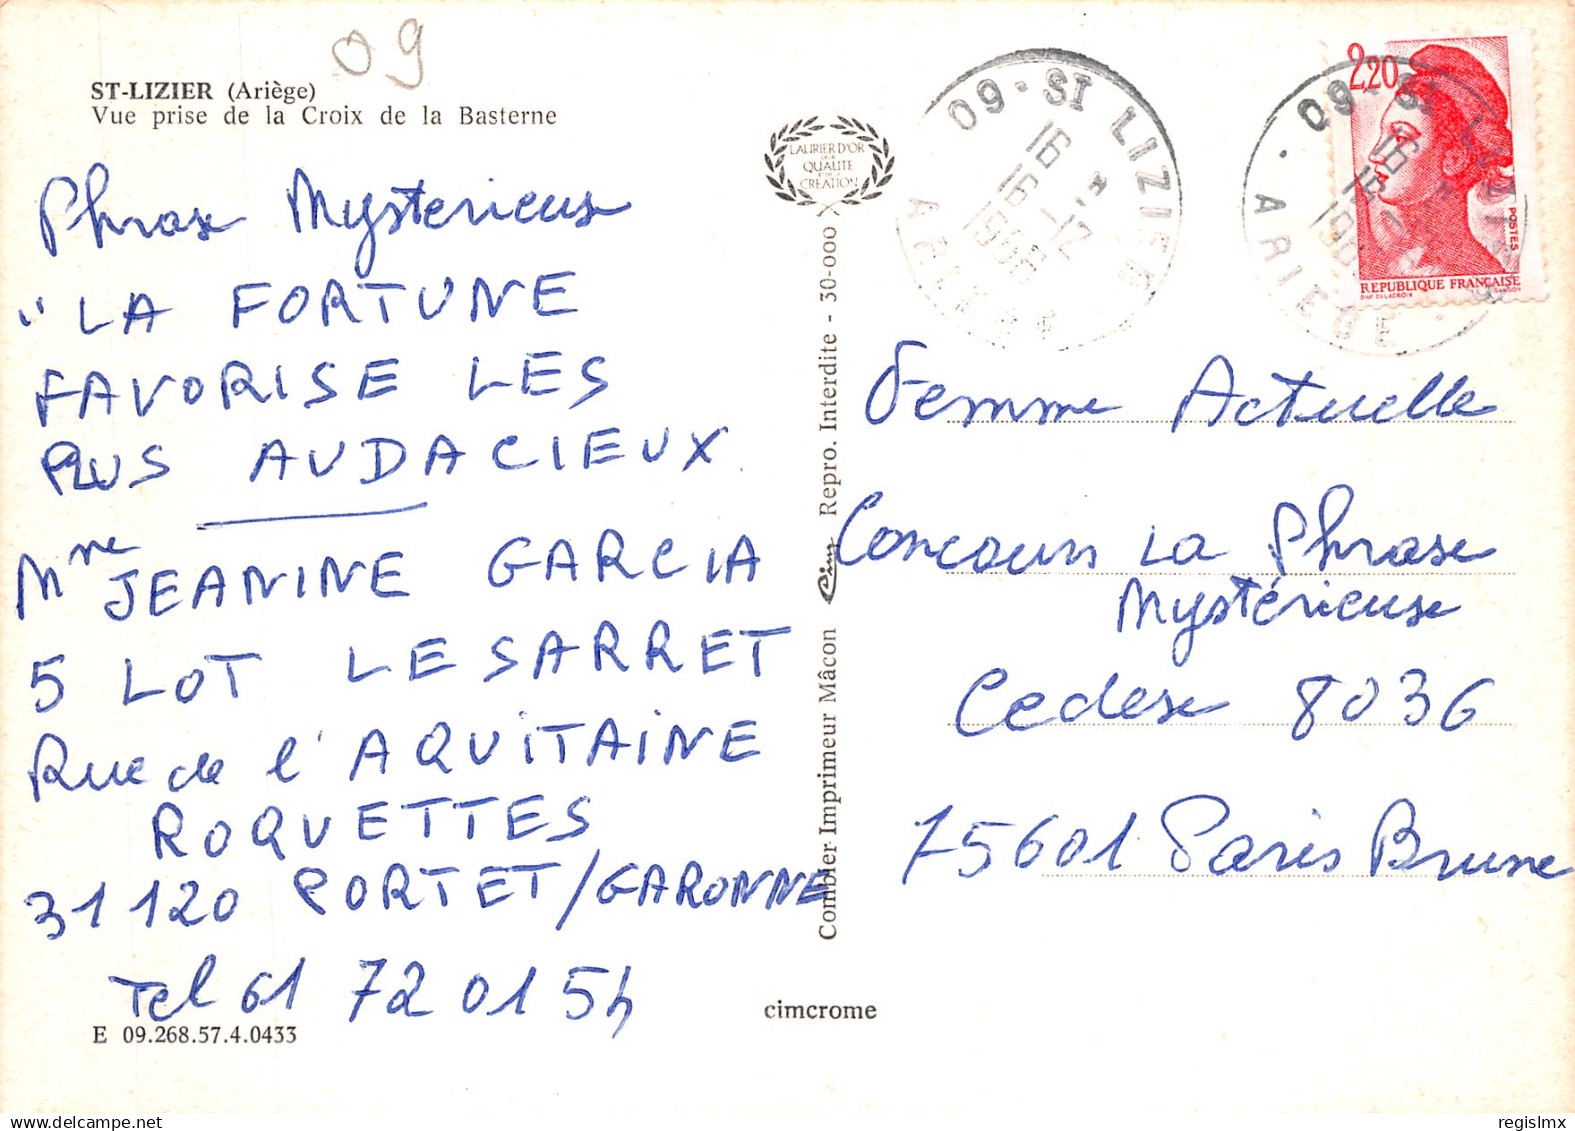 09
ST-LIZIER (Ariège)
Vue prise de la Croix de la Basterne
Phrase Mysterieuse
"LA FORTUNE
FAVORISE LES
PLUS AUDACIEUX
Mme JEANINE GARCIA
5 LOT LE SARRET
Rue de l'AQUITAINE
ROQUETTES
31120 PORTET/GARONNE
Tel 61 72 01 54
E 09.268.57.4.0433
LAURIER D'OR
DE LA
QUALITÉ
CRÉATION
Combier Imprimeur Mâcon Cim Repro. Interdite - 30-000
cimcrome
09 - ST LIZIER
16 H
16 -12
1986
ARIEGE
2,20
POSTES
REPUBLIQUE FRANÇAISE
D'AP. DELACROIX GANDON
09 - ST LIZIER
16 H
16
198
ARIEGE
Femme Actuelle
Concours La Phrase
Mystérieuse
Cedex 8036
75601 Paris Brune
regislmx